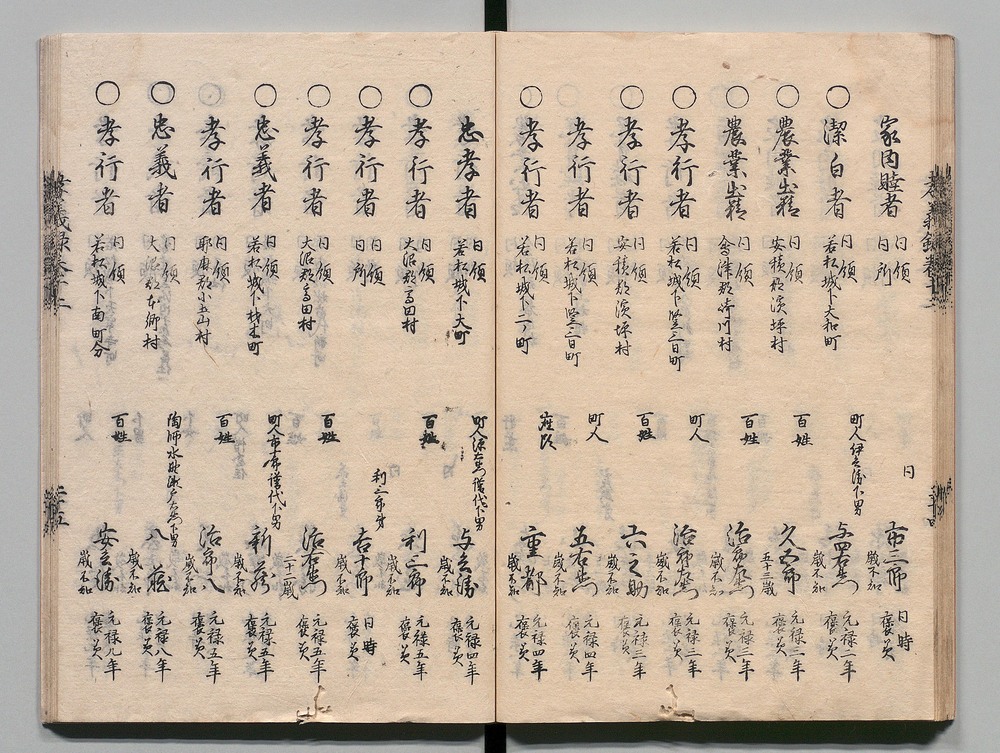 家内睦者 同領 同所 同 市三郎 歳不知 同時 褒美
○潔白者 同領 若松城下大和町 町人伊兵衛下男 与四右衛門 歳不知 元禄二年 褒美
○農業出精 同領 安積郡濱坪村 百姓 久五郎 五十三歳 元禄三年 褒美
○農業出精 同領 会津郡 村 百姓 治郎右衛門 歳不知 元禄三年 褒美
○孝行者 同領 若松城下竪三日町 町人 治郎兵衛 歳不知 元禄三年 褒美
○孝行者 同領 安積郡濱坪村 百姓 六之助 歳不知 元禄三年 褒美
孝行者 同領 若松城下竪三日町 町人 五右衛門 歳不知 元禄四年 褒美
○孝行者 同領 若松城下一ノ町 座頭 重都 歳不知 元禄四年 褒美
忠孝者 同領 若松城下大町 町人 譜代下男 与兵衛 歳不知 元禄四年 褒美
○孝行者 同領 大沼郡高田村 百姓 利三郎 歳不知 元禄五年 褒美
○孝行者 同領 同所 利三郎弟 吉十郎 歳不知 同時 褒美
○孝行者 同領 大沼郡高田村 百姓 治右衛門 二十二歳 元禄五年 褒美
○忠義者 同領 若松城下材木町 町人市 譜代下男 新蔵 歳不知 元禄五年 褒美
○孝行者 同領 耶麻郡小五山村 百姓 治郎八 歳不知 元禄五年 褒美
○忠義者 同領 大沼郡本郷村 陶師水野瀬戸右衛門下男 八蔵 歳不知 元禄八年 褒美
○孝行者 同領 若松城下南町分 百姓 安兵衛 歳不知 元禄九年 褒美